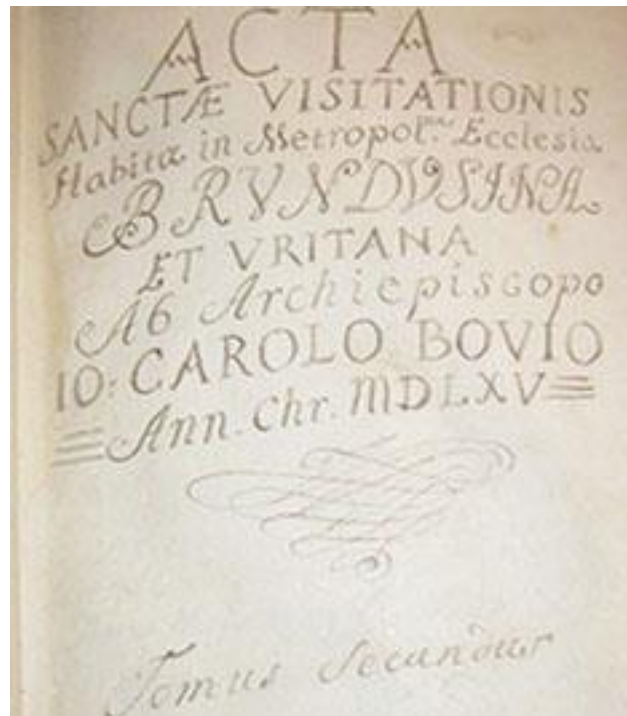 ACTA
SANCTÆ VISITATIONIS
Habitæ in Metropol.na Ecclesia
BRVNDVSINA
ET VRITANA
Ab Archiepiscopo
IO: CAROLO BOVIO
Ann. Chr. MDLXV
Tomus Secundus